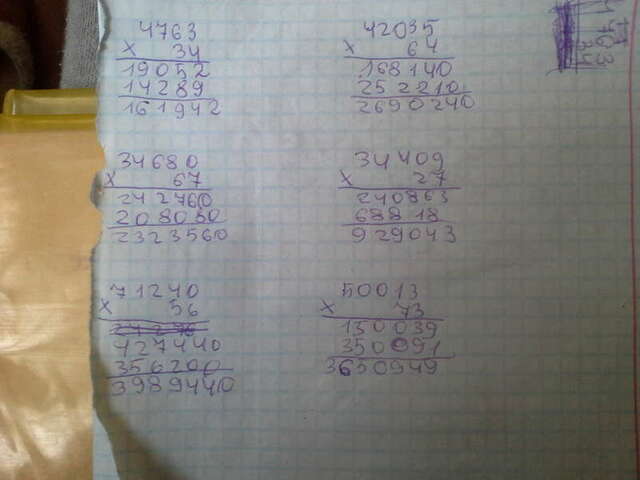 4763
× 34
19052
14289
161942
42035
× 64
168140
252210
2690240
34680
× 67
242760
208080
2323560
34409
× 27
240863
68818
929043
71240
× 56
427440
356200
3989440
50013
× 73
150039
350091
3650949
34